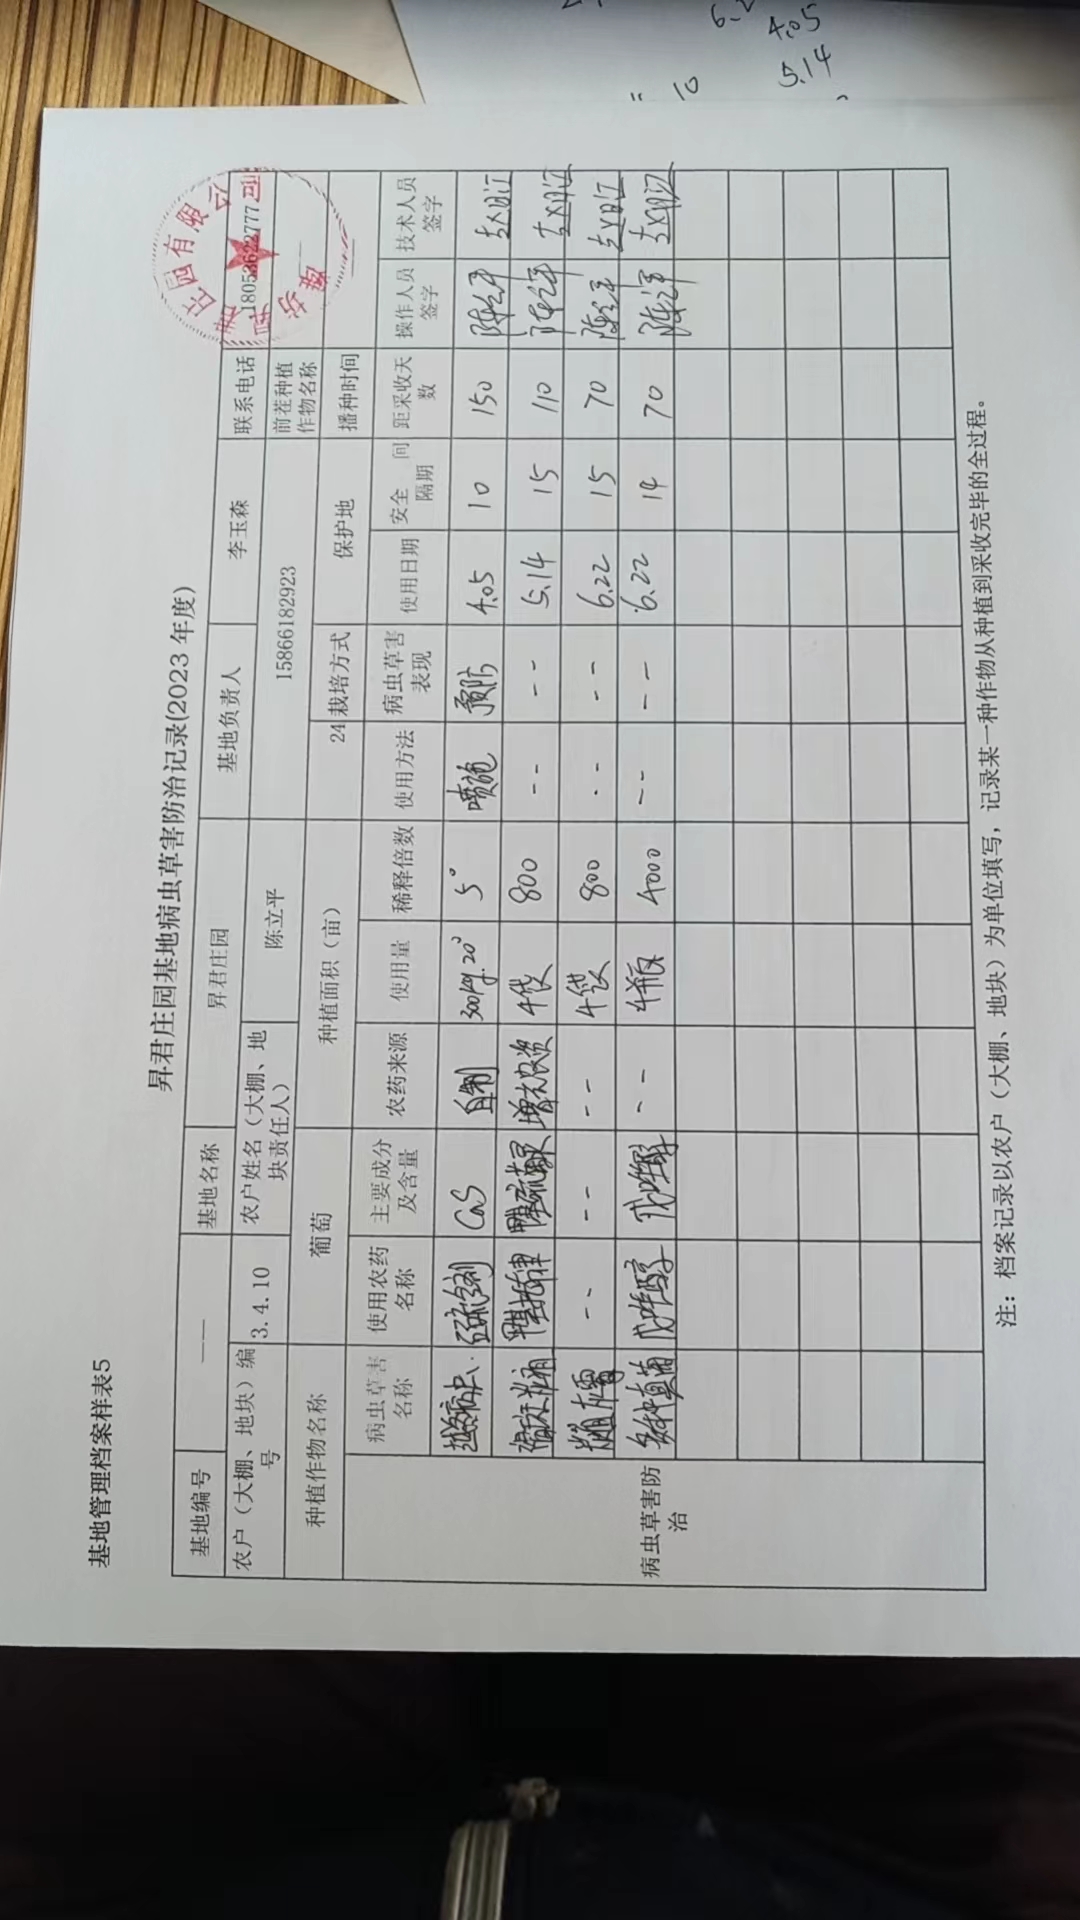 6.2
4.05
5.14
10
基地管理档案样表5
昇君庄园基地病虫草害防治记录(2023 年度)
基地编号 —— 基地名称 昇君庄园 基地负责人 李玉森 联系电话 18053622777
农户(大棚、地块)编号 3.4.10 农户姓名(大棚、地块责任人) 陈立平 15866182923 前茬种植作物名称 ——
种植作物名称 葡萄 种植面积(亩) 24 栽培方式 保护地 播种时间
病虫草害防治
病虫草害名称 使用农药名称 主要成分及含量 农药来源 使用量 稀释倍数 使用方法 病虫草害表现 使用日期 安全间隔期 距采收天数 操作人员签字 技术人员签字
CaS 自制 300kg.20° 5° 喷施 预防 4.05 10 150
农资 4袋 800 -- -- 5.14 15 110
-- -- -- 4袋 800 -- -- 6.22 15 70
多种真菌 戊唑醇 戊唑醇 -- 4瓶 4000 -- -- 6.22 14 70
注：档案记录以农户(大棚、地块)为单位填写，记录某一种作物从种植到采收完毕的全过程。